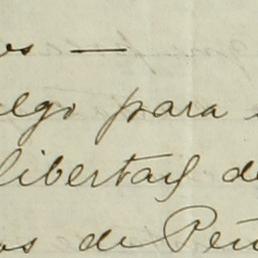 os —
elgo para
libertad de
os de Peñ